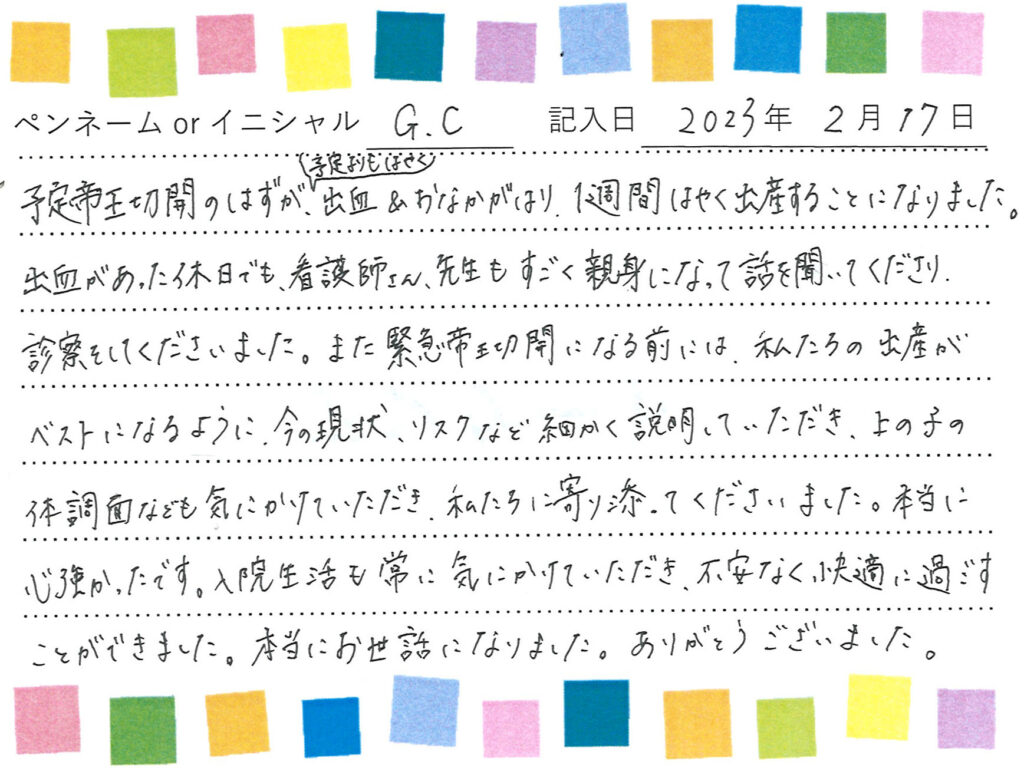 ペンネーム or イニシャル G.C 記入日 2023年 2月 17日
予定よりもはやく
予定帝王切開のはずが、出血&おなかがはり、1週間はやく出産することになりました。
出血があった休日でも、看護師さん、先生もすごく親身になって話を聞いてくださり、
診察をしてくださいました。また緊急帝王切開になる前には、私たちの出産が
ベストになるように、今の現状、リスクなど細かく説明していただき、上の子の
体調面なども気にかけていただき、私たちに寄り添ってくださいました。本当に
心強かったです。入院生活も常に気にかけていただき、不安なく快適に過ごす
ことができました。本当にお世話になりました。ありがとうございました。